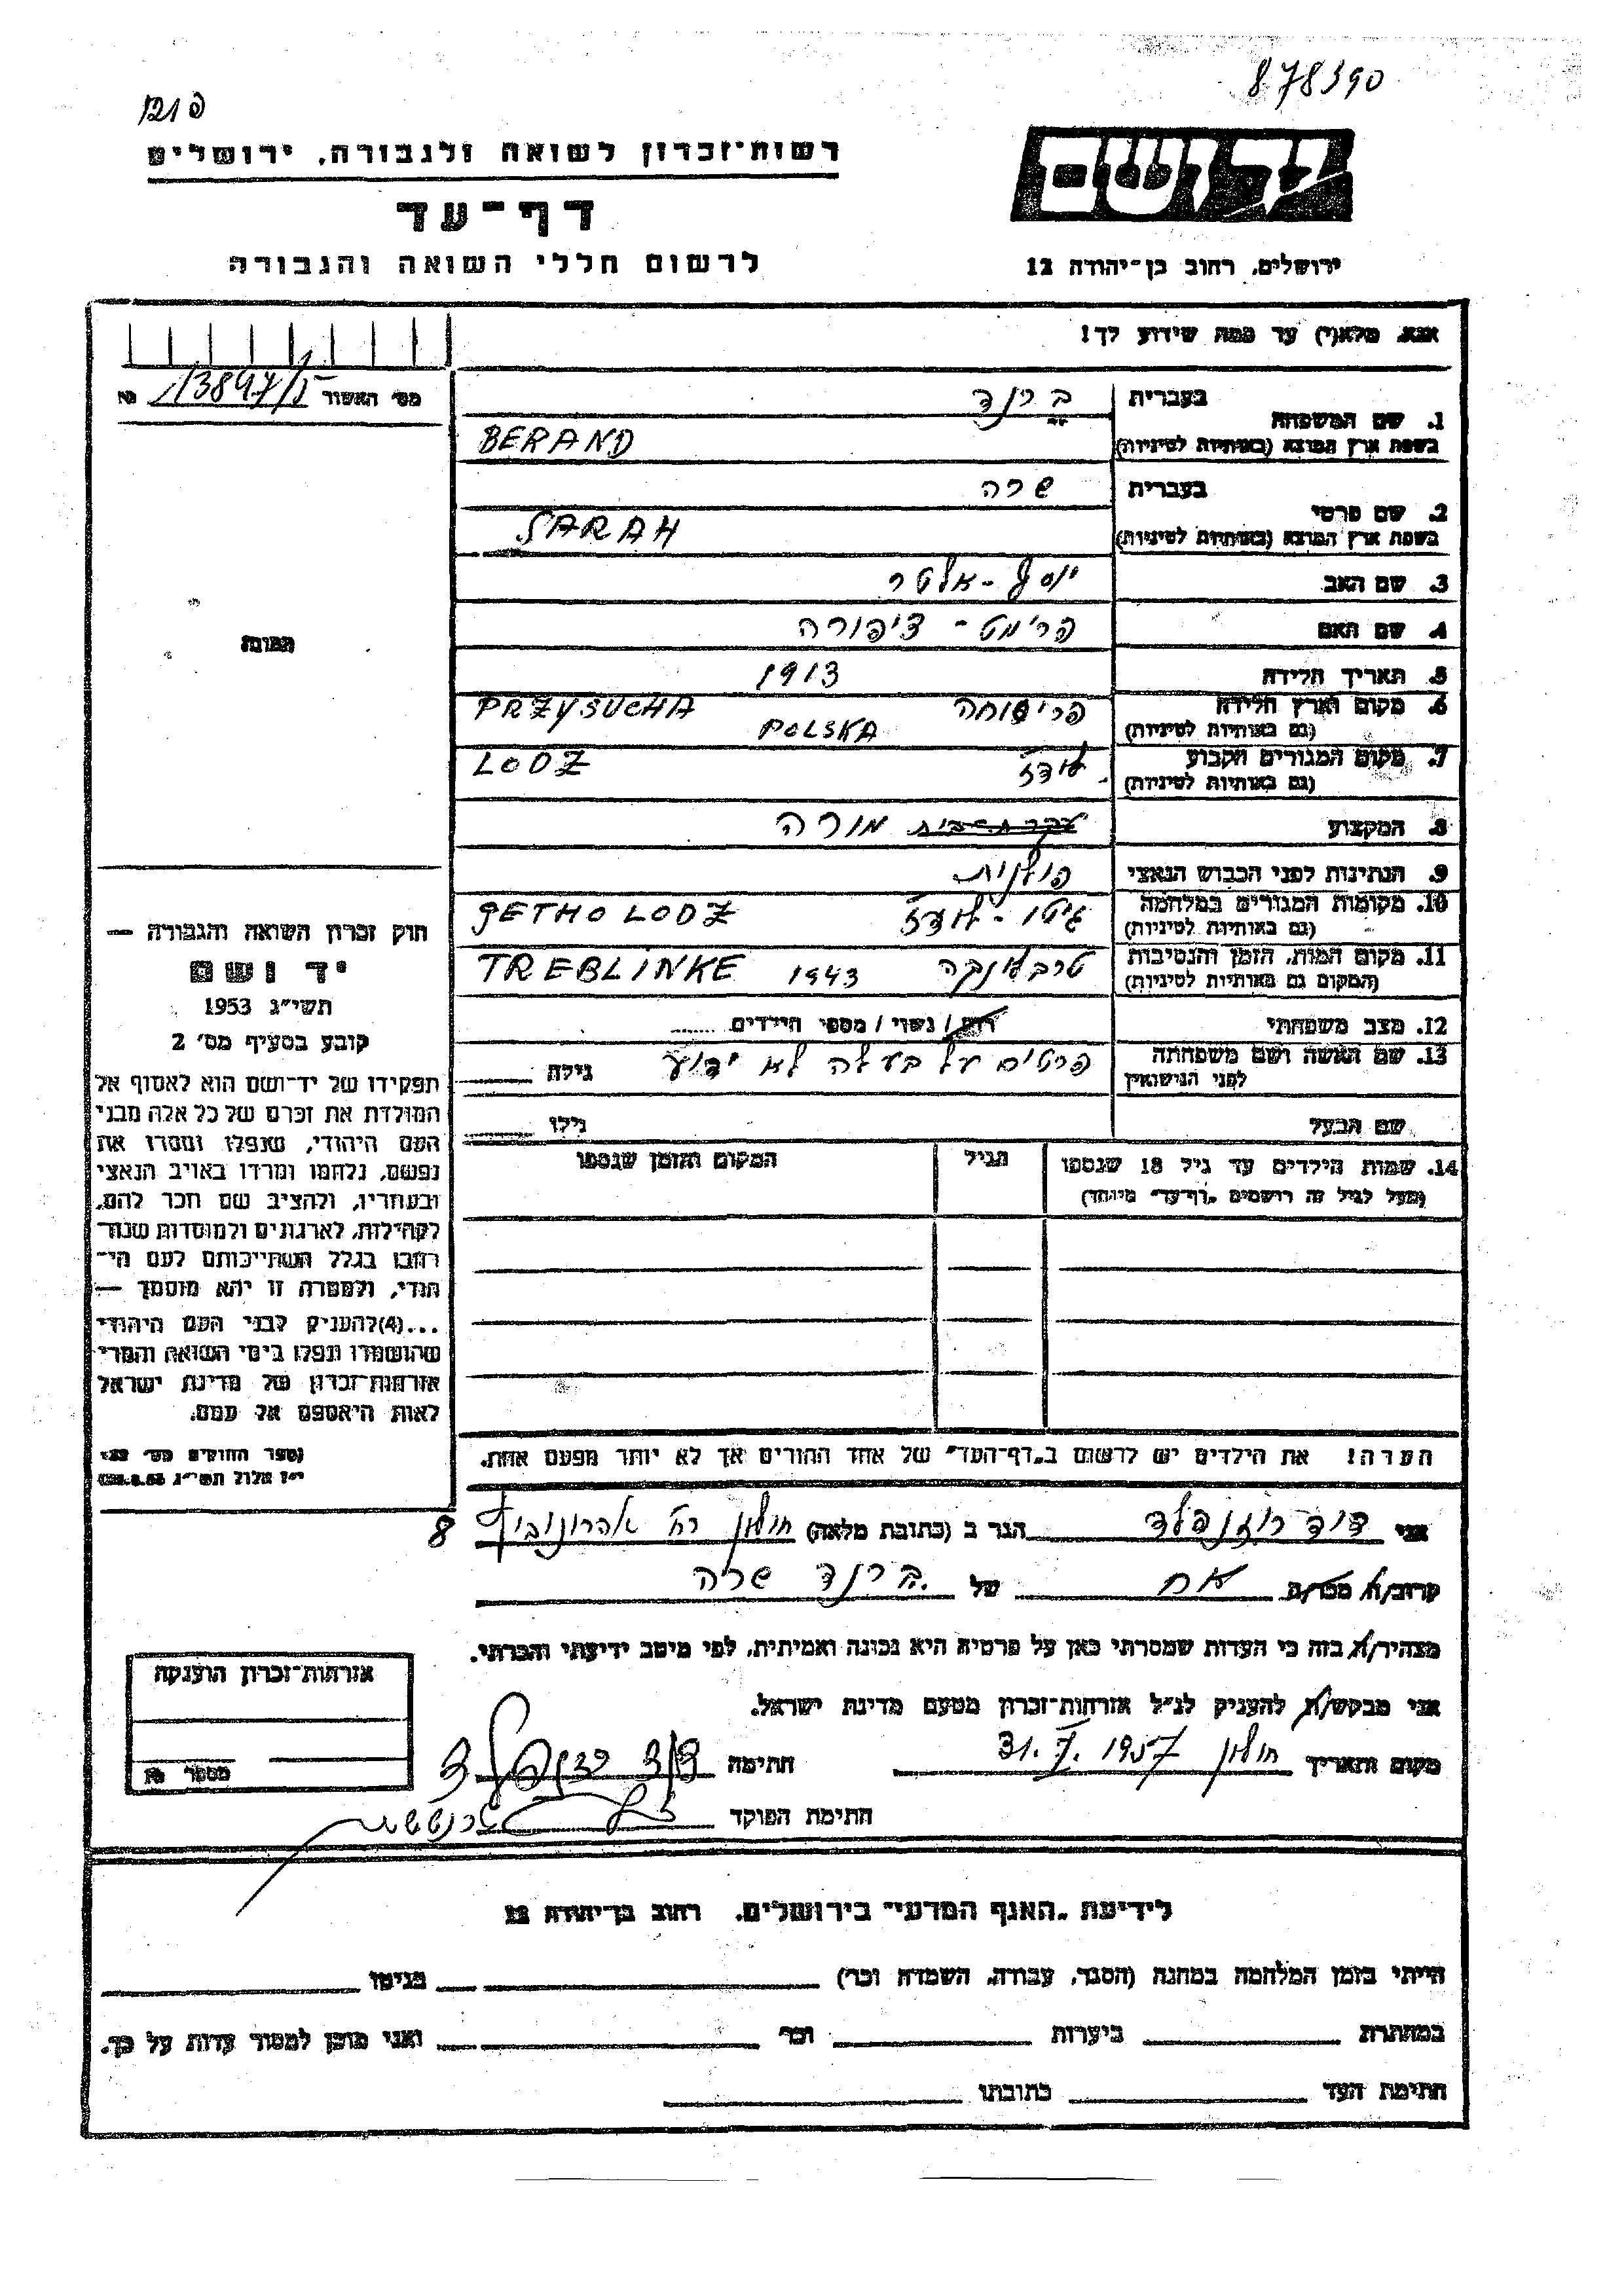 878390
פ 121
רשות־זכרון לשואה ולגבורה, ירושלים
יד ושם
דף־עד
ירושלים, רחוב בן־יהודה 12
לרשום חללי השואה והגבורה
אנא, מלא(י) עד כמה שידוע לך!
מס' האשור № 13897/I
1. שם המשפחה
בעברית
ברנד
בשפת ארץ המוצא (באותיות לטיניות)
BERAND
2. שם פרטי
בעברית
שרה
בשפת ארץ המוצא (באותיות לטיניות)
SARAH
3. שם האב
יוסף - אלטר
4. שם האם
פרימט - ציפורה
5. תאריך הלידה
1913
6. מקום וארץ הלידה
(גם באותיות לטיניות)
פרישוחה PRZYSUCHA
POLSKA
7. מקום המגורים הקבוע
(גם באותיות לטיניות)
לודז LODZ
8. המקצוע
מורה
9. הנתינות לפני הכבוש הנאצי
פולנית
10. מקומות המגורים במלחמה
(גם באותיות לטיניות)
גיטו - לודז GETHO LODZ
11. מקום המות, הזמן והנסיבות
(המקום גם באותיות לטיניות)
טרבלינקה 1943 TREBLINKE
12. מצב משפחתי
רווק / נשוי / מספר הילדים
13. שם האשה ושם משפחתה
לפני הנישואין
פרטים על בעלה לא ידוע
גילה
שם הבעל
גילו
14. שמות הילדים עד גיל 18 שנספו
(מעל לגיל זה רושמים „דף־עד" מיוחד)
הגיל
המקום והזמן שנספו
הערה! את הילדים יש לרשום ב„דף־העד" של אחד ההורים אך לא יותר מפעם אחת.
תמונה
חוק זכרון השואה והגבורה —
יד ושם
תשי"ג 1953
קובע בסעיף מס' 2
תפקידו של יד־ושם הוא לאסוף אל
המולדת את זכרם של כל אלה מבני
העם היהודי, שנפלו ומסרו את
נפשם, נלחמו ומרדו באויב הנאצי
ובעוזריו, ולהציב שם וזכר להם,
לקהילות, לארגונים ולמוסדות שנח־
רבו בגלל השתייכותם לעם הי־
הודי, ולמטרה זו יהא מוסמך —
...(4)להעניק לבני העם היהודי
שהושמדו ונפלו בימי השואה והמרי
אזרחות־זכרון של מדינת ישראל
לאות היאספם אל עמם.
(ספר החוקים מס' 132
י"ז אלול תשי"ג 28.8.53)
אני דוד רוזנפלד הגר ב (כתובת מלאה) חולון רח' אהרונוביץ 8
קרוב/ה מכר/ה אח של ברנד שרה
מצהיר/ה בזה כי העדות שמסרתי כאן על פרטיה היא נכונה ואמיתית, לפי מיטב ידיעתי והכרתי.
אני מבקש/ת להעניק לנ"ל אזרחות־זכרון מטעם מדינת ישראל.
מקום ותאריך חולון 31.7.1957 חתימה דוד רוזנפלד
חתימת הפוקד
אזרחות־זכרון הוענקה
מספר №
לידיעת „האגף המדעי" בירושלים, רחוב בן־יהודה 12
הייתי בזמן המלחמה במחנה (הסגר, עבודה, השמדה וכו') בגיטו
במחתרת ביערות וכו' ואני מוכן למסור עדות על כך.
חתימת העד כתובתו